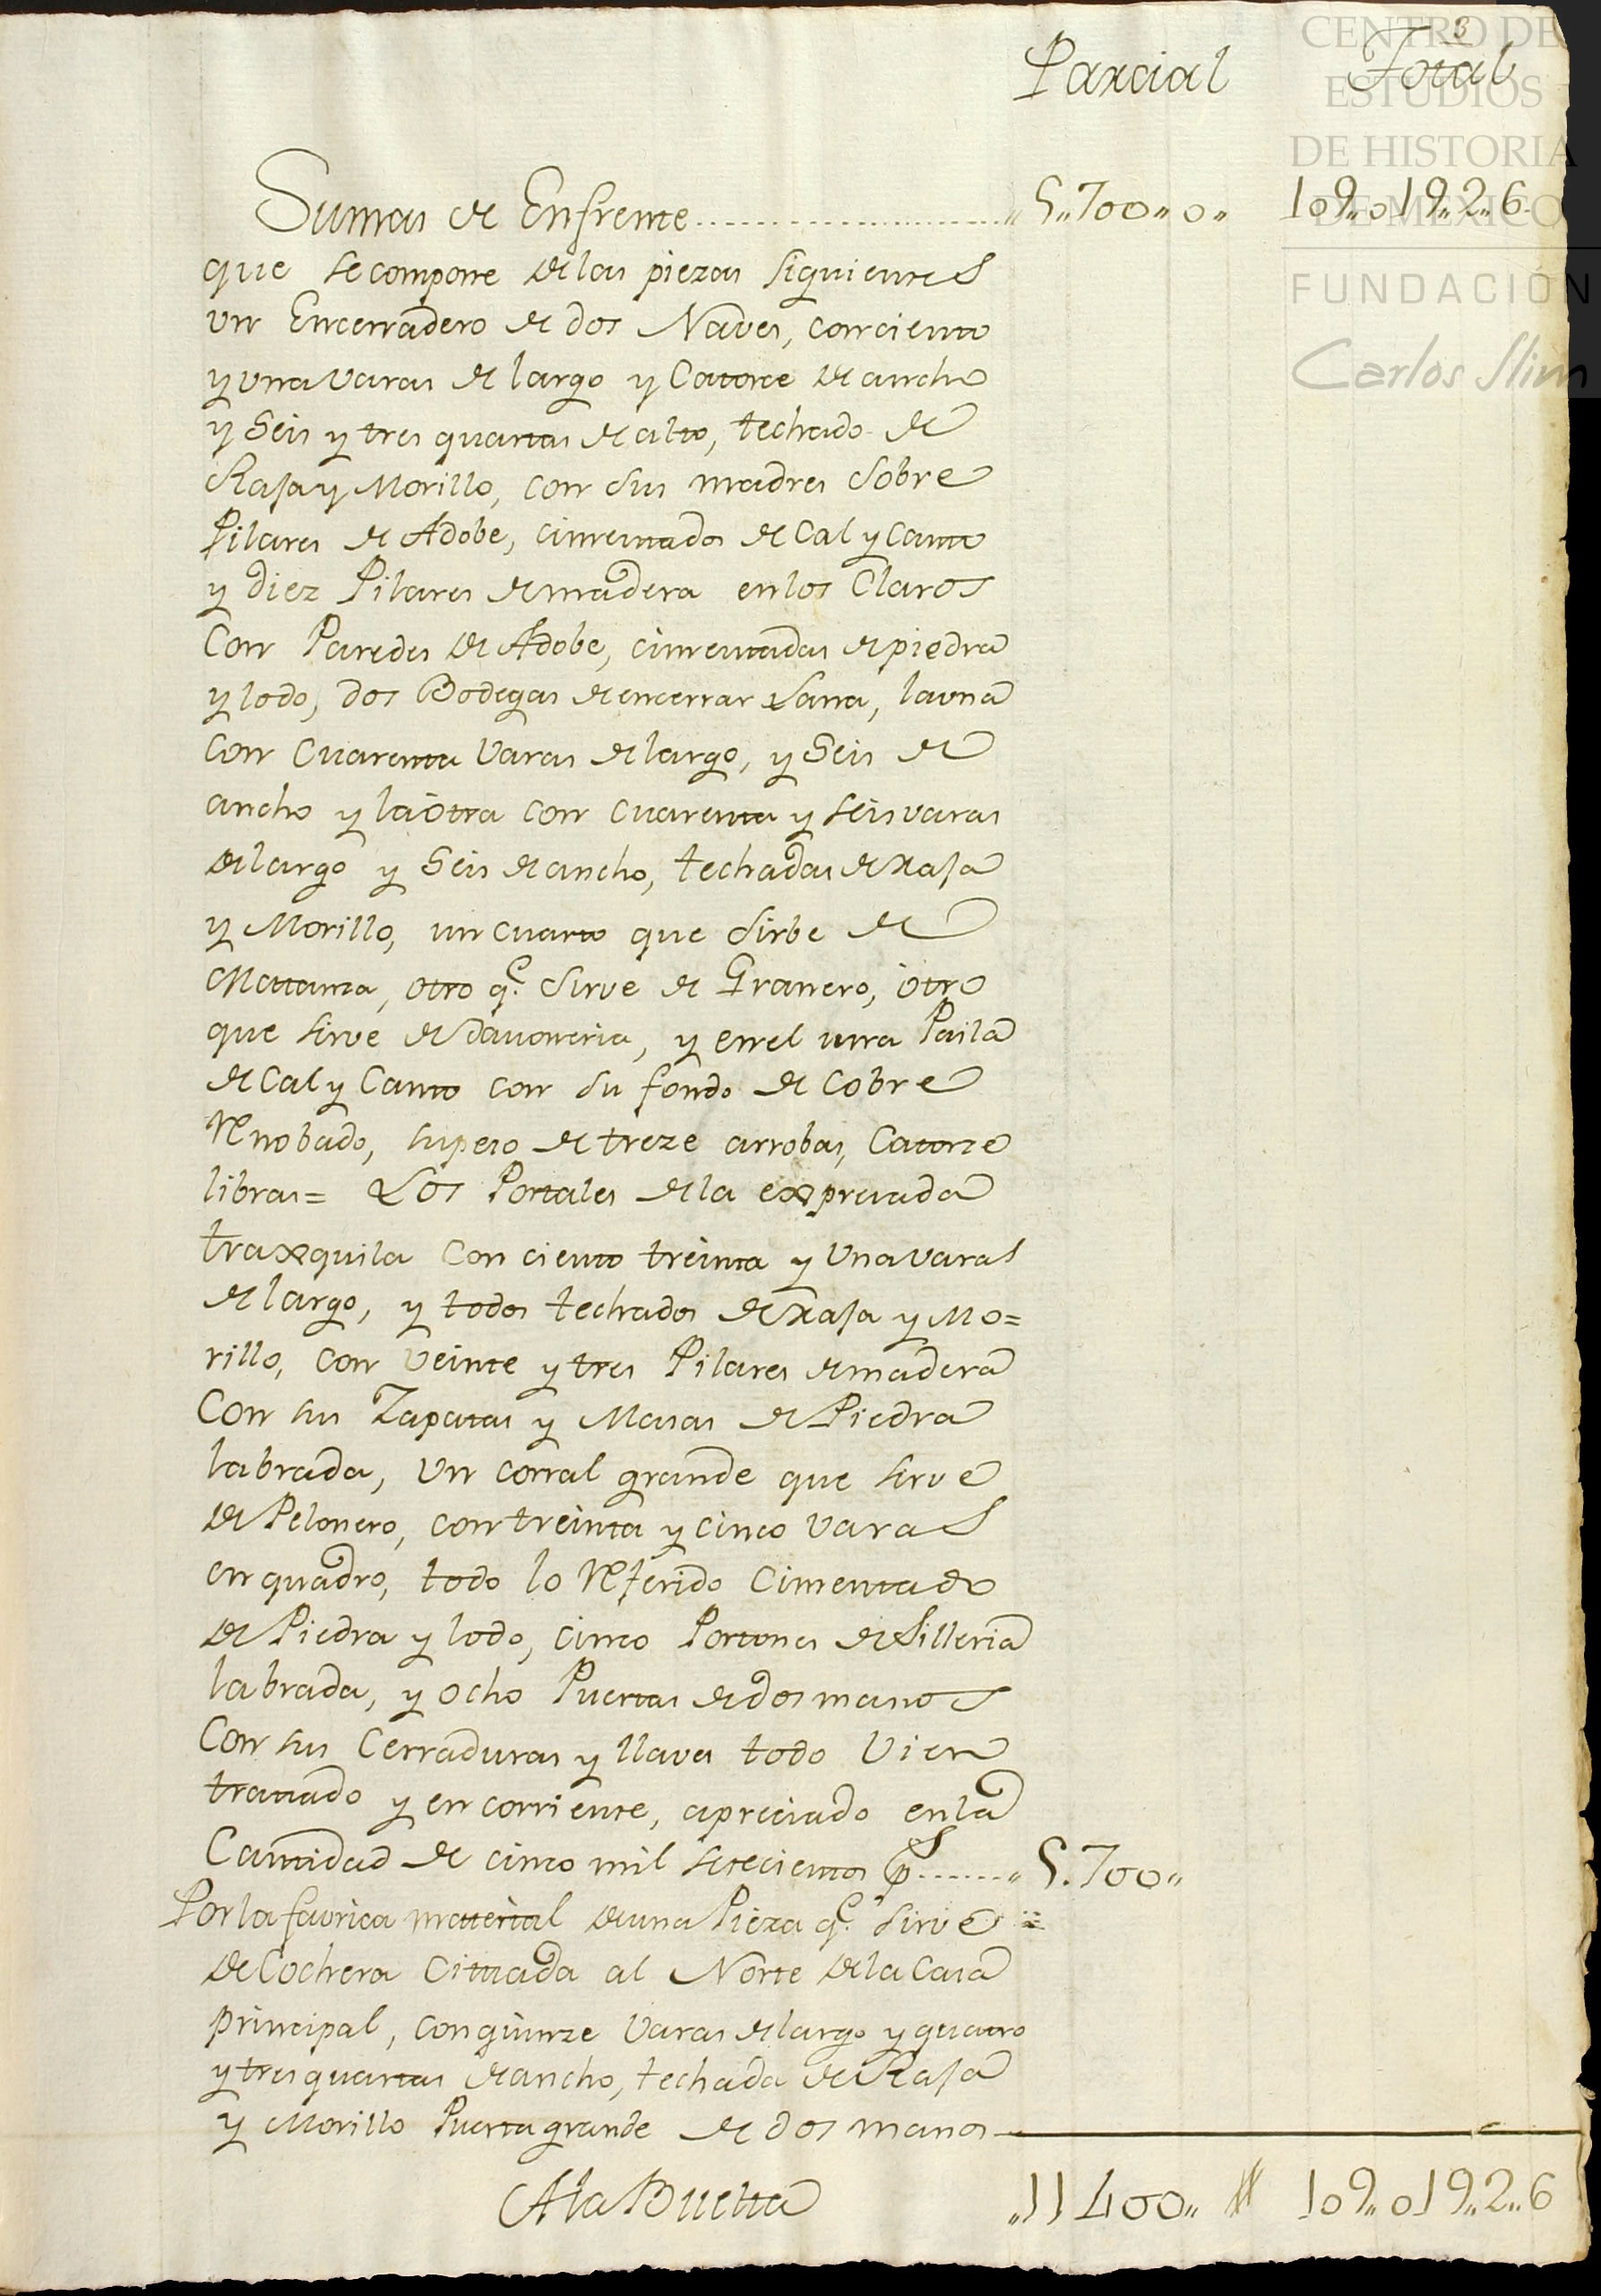 3
Parcial Total
Sumas de Enfrente ........................ „ 5„700„0„ 109„019„2„6
que se compone de las piezas siguientes
un Encerradero de dos Naves, con ciento
y una varas de largo y Catorce de ancho
y Seis y tres quartas de alto, techado de
Raja y Morillo, con sus madres sobre
Pilares de Adobe, cimentados de Cal y Canto
y diez Pilares de madera en los Claros
Con Paredes de Adobe, cimentadas de piedra
y lodo, dos Bodegas de encerrar Lana, la una
con Cuarenta Varas de largo, y Seis de
ancho y la otra con cuarenta y seis varas
de largo y Seis de ancho, techadas de raja
y Morillo, un cuarto que Sirbe de
Mattanza, otro q.e Sirve de Granero, otro
que sirve de Savoneria, y en el una Paila
de Cal y Canto con su fondo de Cobre
Renobado, su peso de treze arrobas, Catorze
libras= Los Portales de la expresada
traxquila Con ciento treinta y Una varas
de largo, y todos techados de raja y Mo=
rillo, con Veinte y tres Pilares de madera
Con sus Zapatas y Masas de Piedra
labrada, Un corral grande que sirve
de Pelonero, con treinta y cinco Varas
en quadro, todo lo Referido Cimentado
de Piedra y lodo, cinco Portones de Silleria
labrada, y ocho Puertas de dos manos
Con sus Cerraduras y llaves todo Vien
tratado y en corriente, apreciado en la
Cantidad de cinco mil setecientos p.s ........ „ 5.700„
Por la favrica material de una Pieza q.e Sirve
de Cochera Cituada al Norte de la Casa
principal, con quinze Varas de largo y quatro
y tres quartas de ancho, techada de Raja
y Morillo Puerta grande de dos manos
A la Buelta „11400„ # 109„019„2„6
CENTRO DE
ESTUDIOS
DE HISTORIA
DE MÉXICO
FUNDACIÓN
Carlos Slim